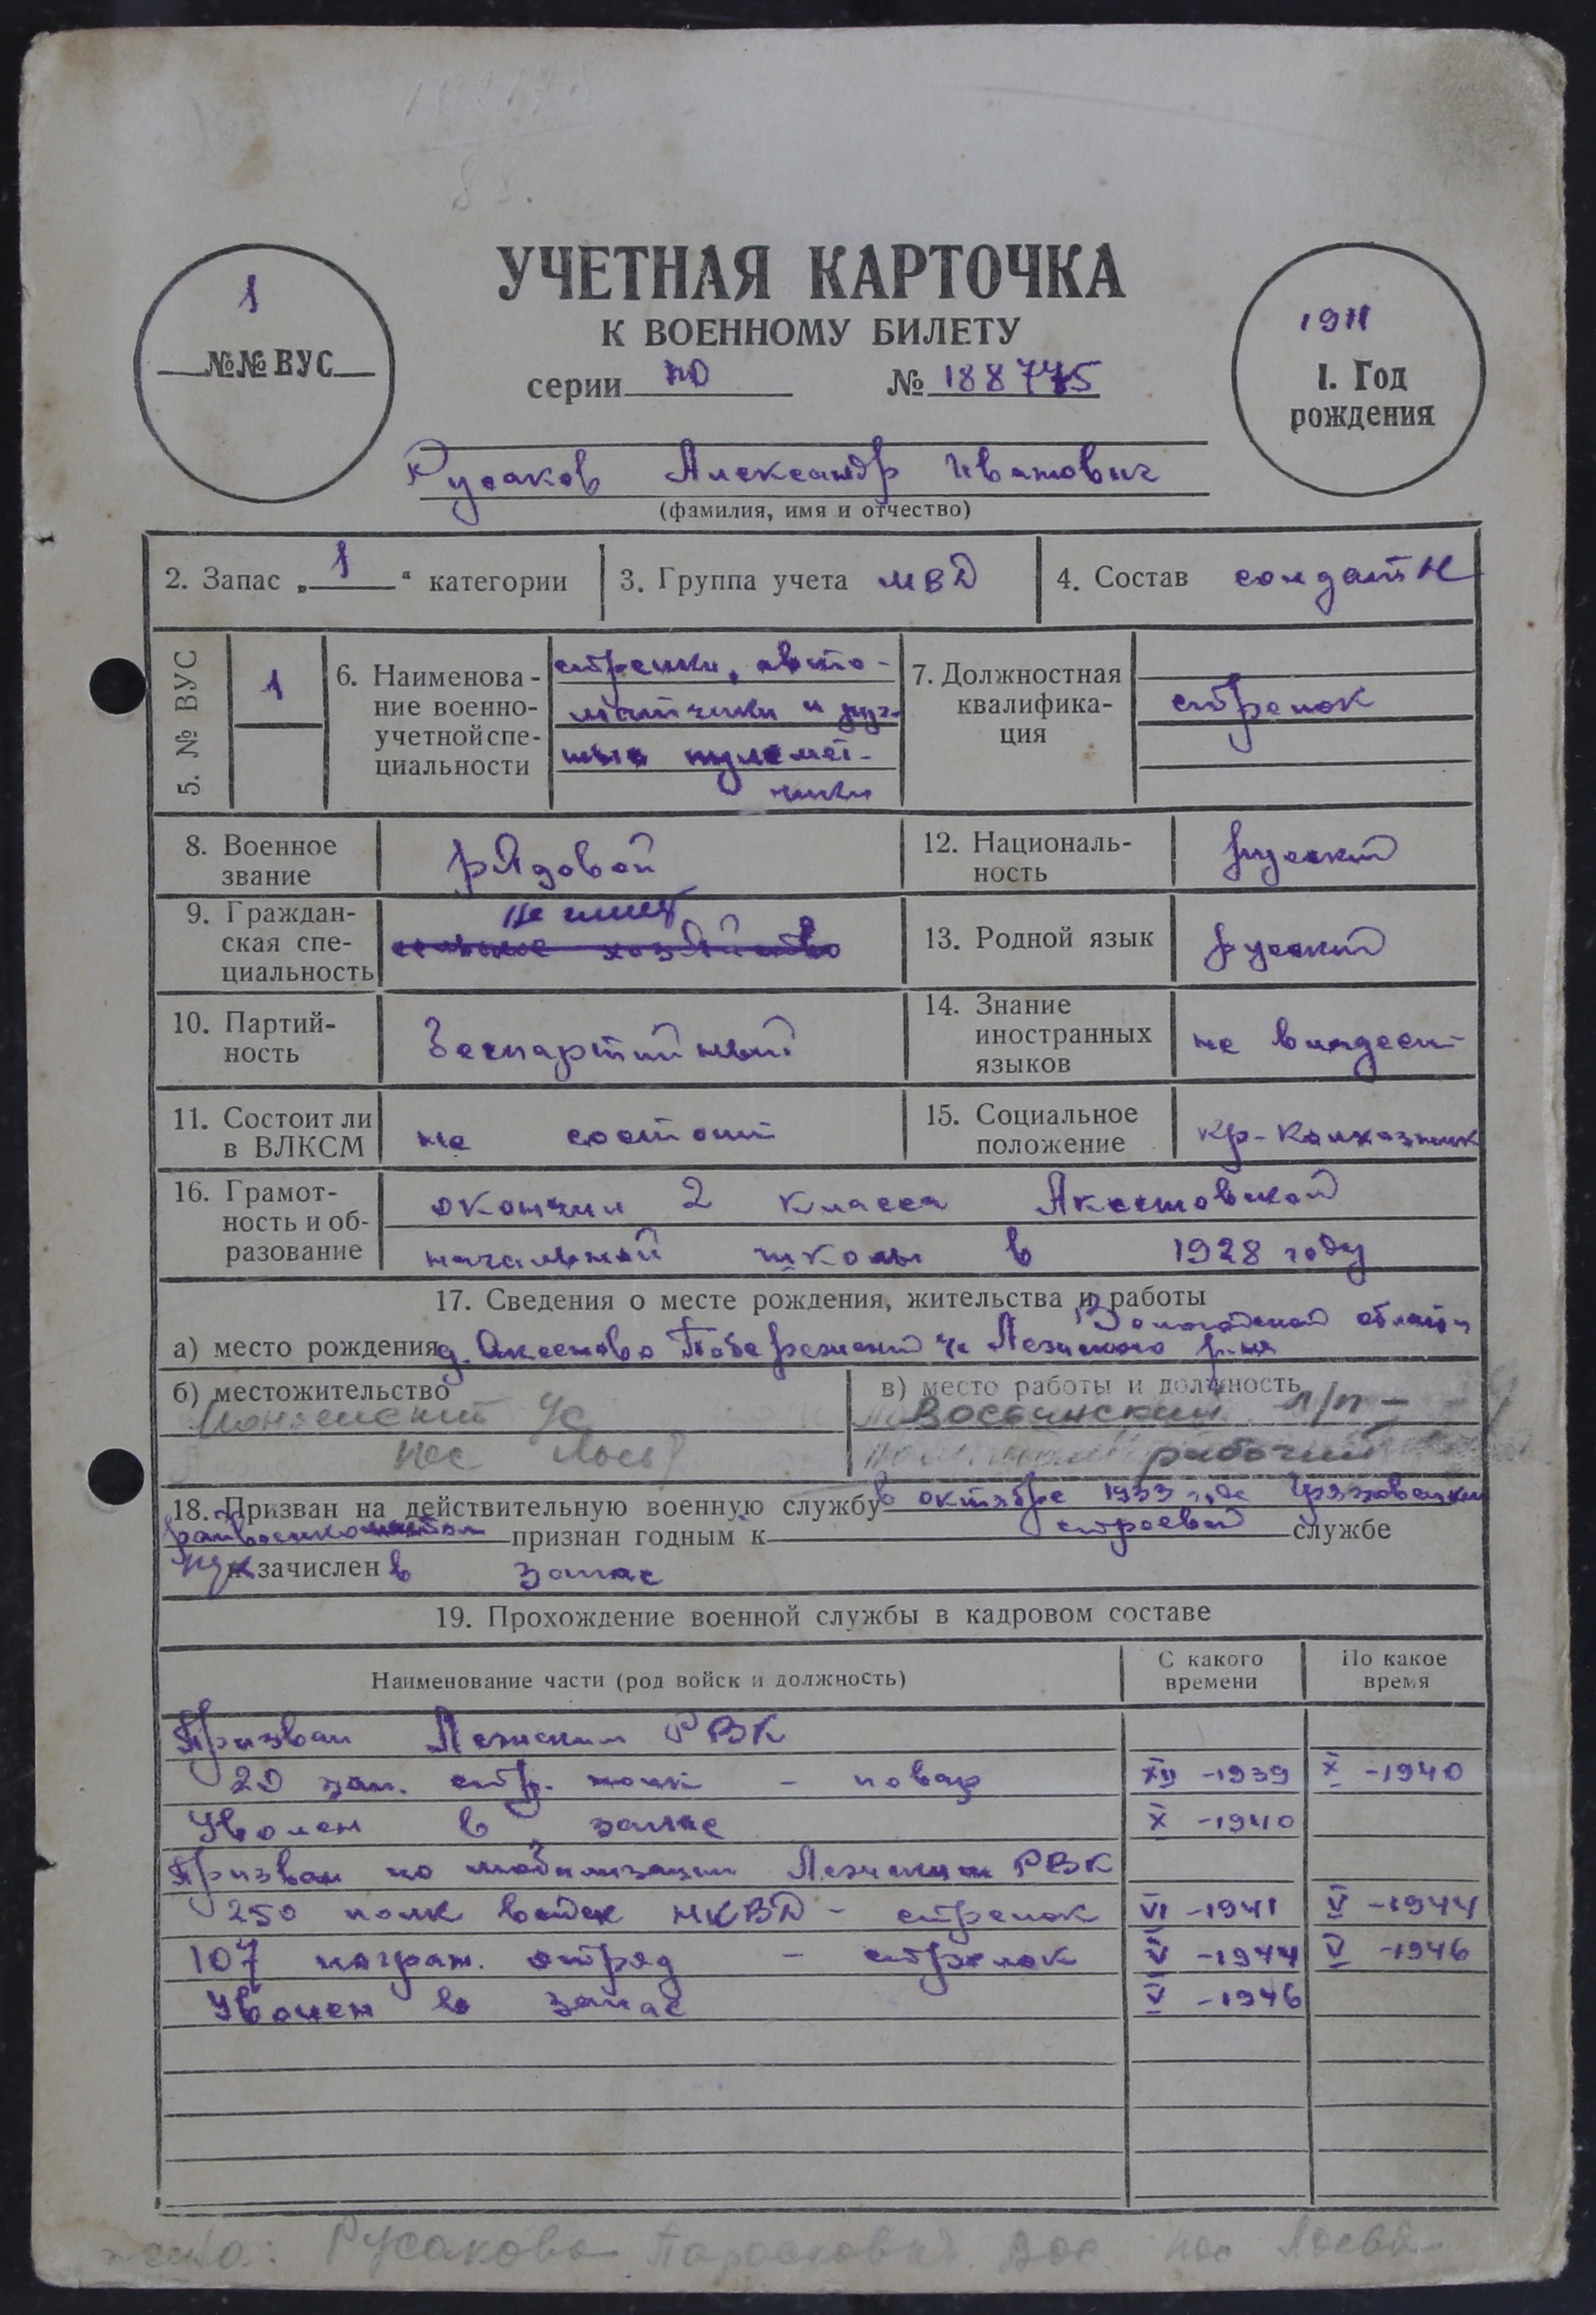 УЧЕТНАЯ КАРТОЧКА
К ВОЕННОМУ БИЛЕТУ
серии ПО № 188775
1
№№ ВУС
1911
1. Год
рождения
Русаков Александр Иванович
(фамилия, имя и отчество)
2. Запас „1“ категории
3. Группа учета МВД
4. Состав солдат
5. № ВУС
1
6. Наименова-
ние военно-
учетной спе-
циальности
стрелки, авто-
матчики и руч-
ные пулемет-
чики
7. Должностная
квалифика-
ция
стрелок
8. Военное
звание
рядовой
12. Националь-
ность
русский
9. Граждан-
ская спе-
циальность
не имеет
сельское хозяйство
13. Родной язык
русский
10. Партий-
ность
Беспартийный
14. Знание
иностранных
языков
не владеет
11. Состоит ли
в ВЛКСМ
не состоит
15. Социальное
положение
кр-колхозник
16. Грамот-
ность и об-
разование
окончил 2 класса Аксеновской
начальной школы в 1928 году
17. Сведения о месте рождения, жительства и работы
Вологодской области
а) место рождения д. Аксеново Лежского р-на
б) местожительство
в) место работы и должность
пос
рабочий
18. Призван на действительную военную службу в октябре 1933 года Грязовецким
райвоенкоматом признан годным к строевой службе
зачислен в запас
19. Прохождение военной службы в кадровом составе
Наименование части (род войск и должность)
С какого
времени
По какое
время
Призван Лежским РВК
20 зап. стр. полк - повар XII -1939 X -1940
Уволен в запас X -1940
Призван по мобилизации Лежским РВК
250 полк войск НКВД - стрелок VI -1941 V -1944
107 погран. отряд - стрелок V -1944 V -1946
Уволен в запас V -1946
жена: Русакова пос